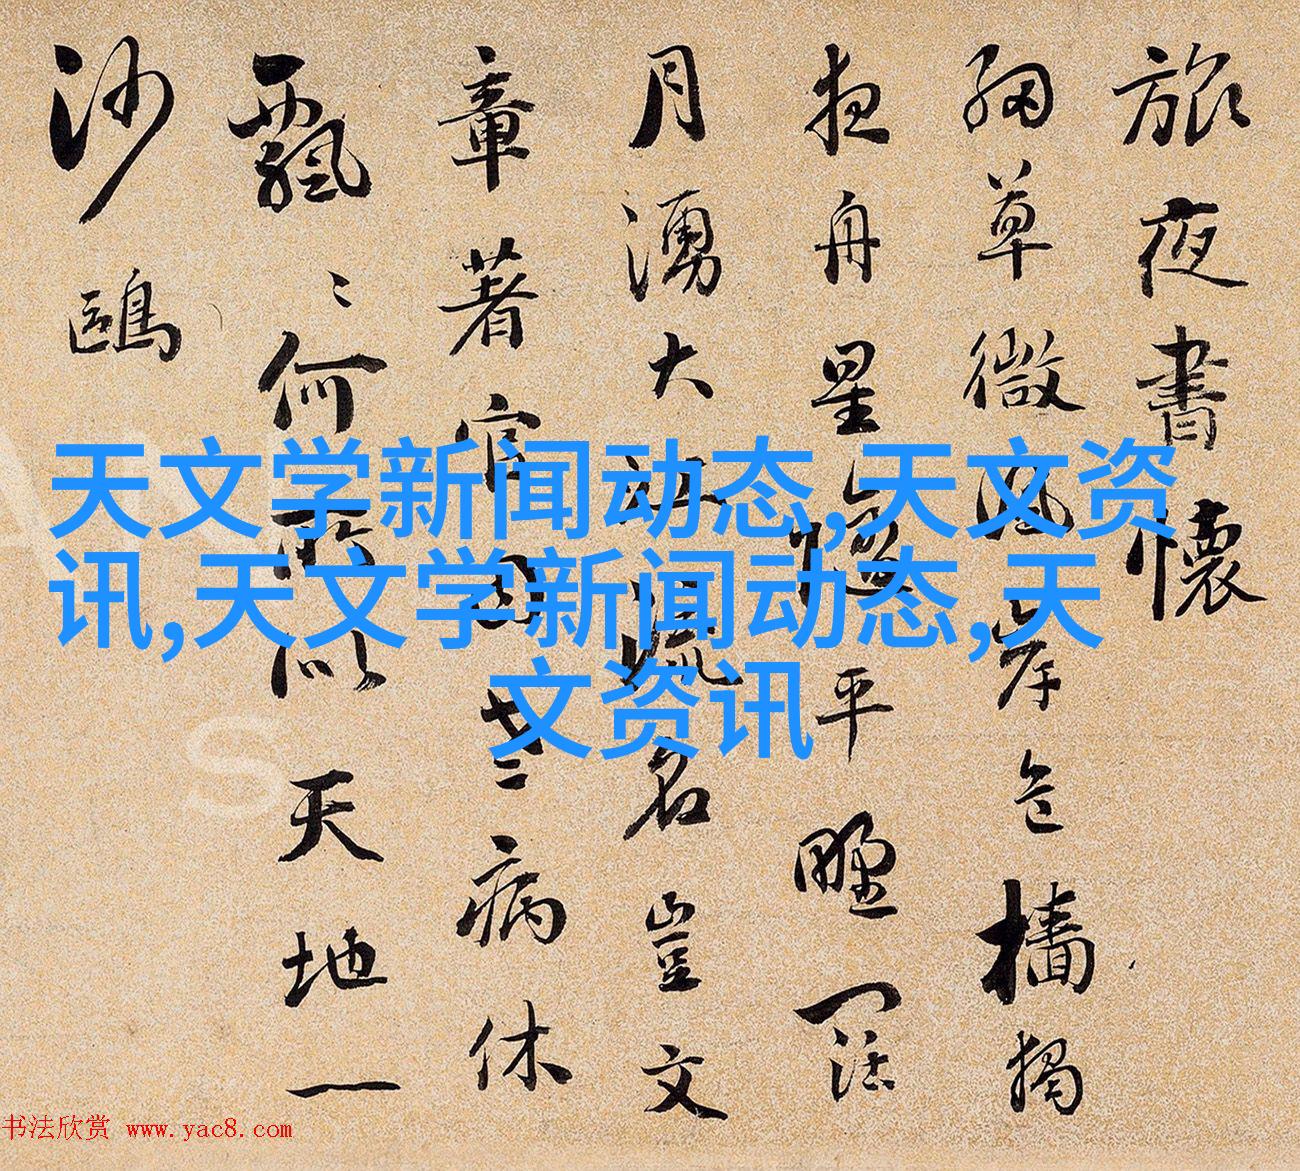 旅夜書懷
細草微風岸危檣獨
夜舟星隨平野闊
月湧大江流名豈文
章著官因老病休
飄〻何所似天地一
沙鷗
天文学新闻动态,天文资
讯,天文学新闻动态,天
文资讯
书法欣赏 www.yac8.com